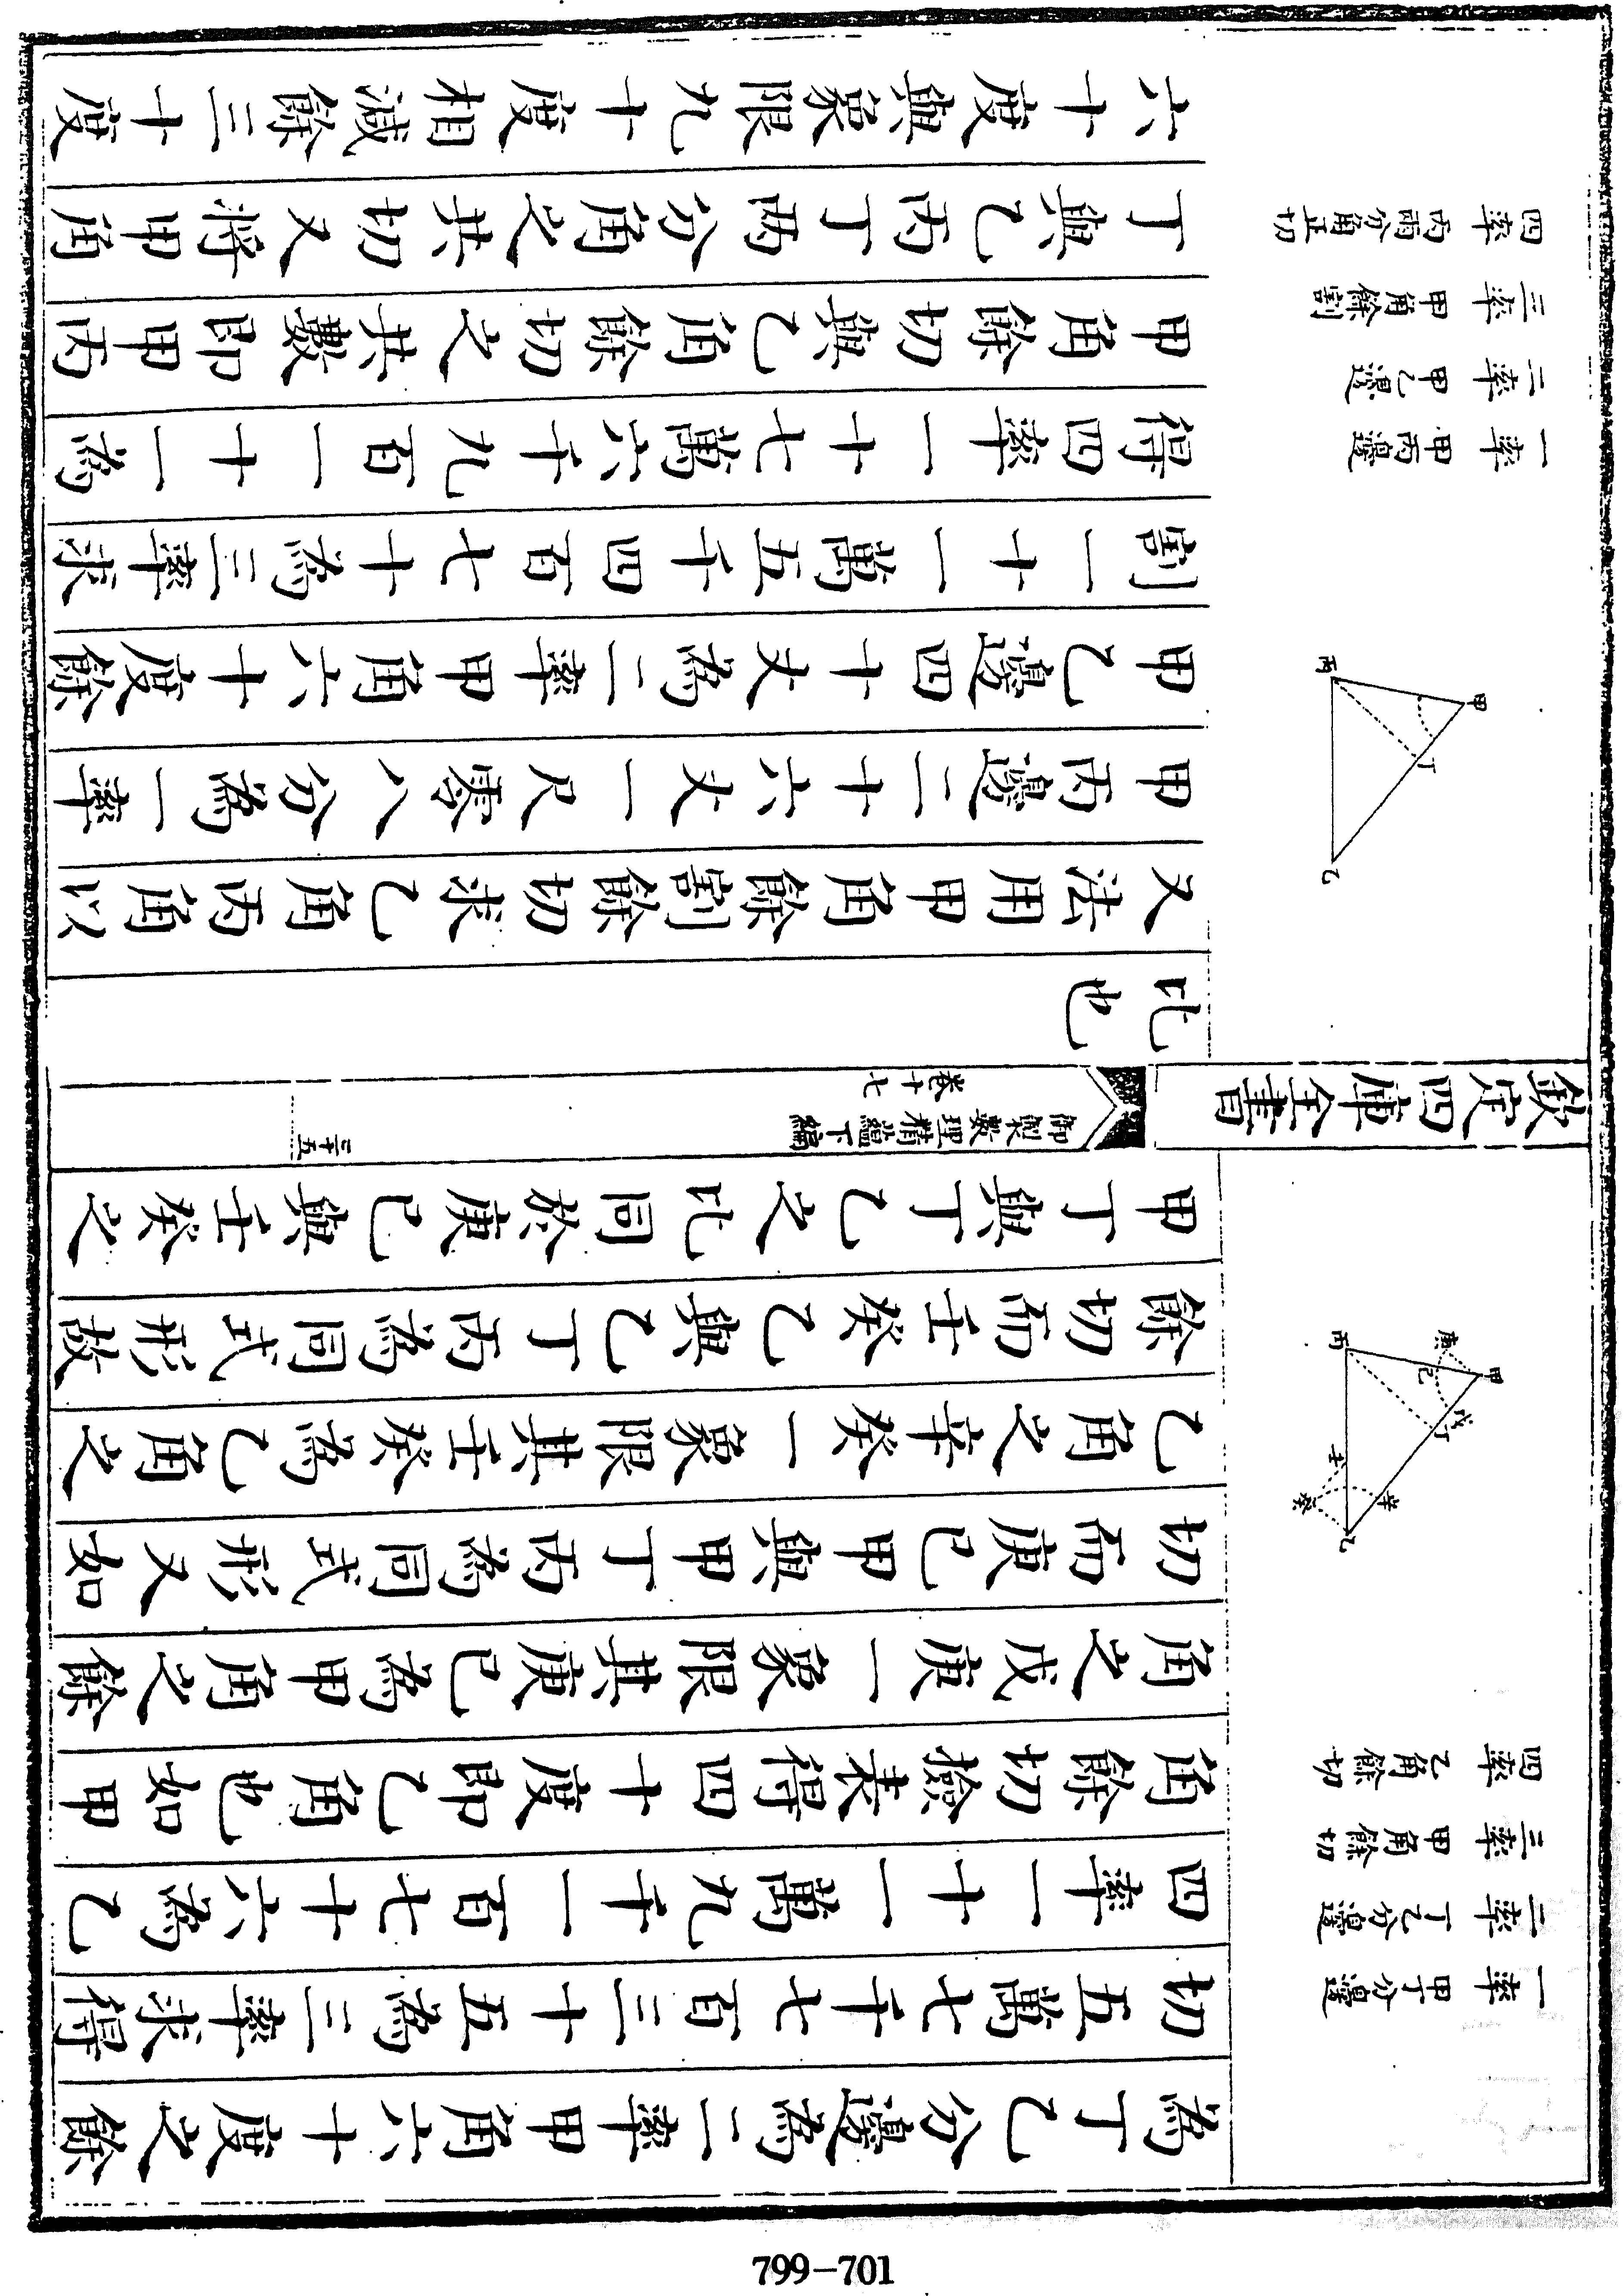 一率 甲丁分邊
二率 丁乙分邊
三率 甲角餘切
四率 乙角餘切
丙 庚 甲 己 戊 丁 壬 辛 癸 乙
為丁乙分邊為二率甲角六十度之餘
切五萬七千七百三十五為三率求得
四率一十一萬九千一百七十六為乙
角餘切撿表得四十度即乙角也如甲
角之戊庚一象限其庚己為甲角之餘
切而庚己甲與甲丁丙為同式形又如
乙角之辛癸一象限其壬癸為乙角之
餘切而壬癸乙與乙丁丙為同式形故
甲丁與丁乙之比同於庚己與壬癸之
欽定四庫全書
御製數理精蘊下編
卷十七
二十五
比也
又法用甲角餘割餘切求乙角丙角以
甲丙邊二十六丈一尺零八分為一率
甲乙邊四十丈為二率甲角六十度餘
割一十一萬五千四百七十為三率求
得四率一十七萬六千九百一十一為
甲角餘切與乙角餘切之共數即甲丙
丁與乙丙丁兩分角之共切又將甲角
六十度與象限九十度相減餘三十度
丙 甲 丁 乙
一率 甲丙邊
二率 甲乙邊
三率 甲角餘割
四率 丙兩分角正切
799-701